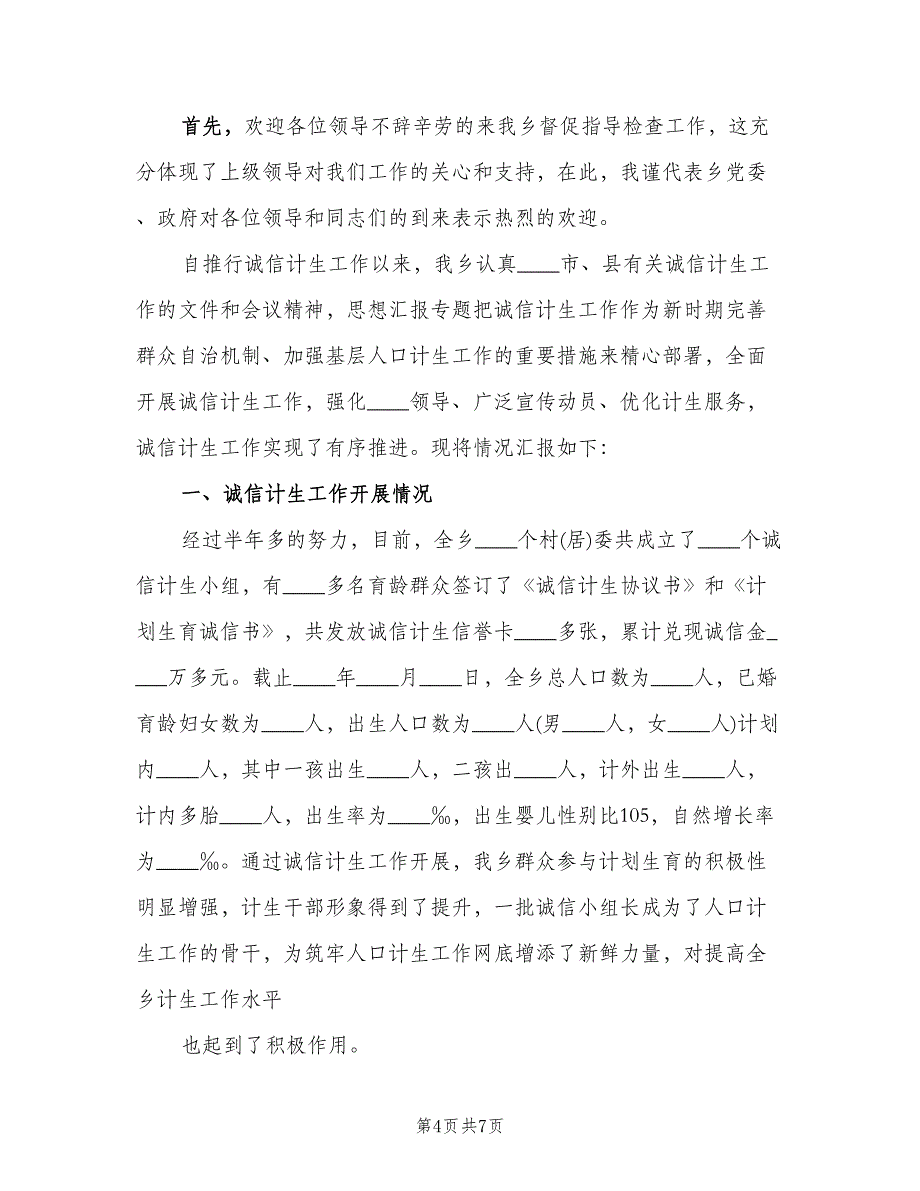 首先，欢迎各位领导不辞辛劳的来我乡督促指导检查工作，这充
分体现了上级领导对我们工作的关心和支持，在此，我谨代表乡党委
、政府对各位领导和同志们的到来表示热烈的欢迎。
自推行诚信计生工作以来，我乡认真____市、县有关诚信计生工
作的文件和会议精神，思想汇报专题把诚信计生工作作为新时期完善
群众自治机制、加强基层人口计生工作的重要措施来精心部署，全面
开展诚信计生工作，强化____领导、广泛宣传动员、优化计生服务，
诚信计生工作实现了有序推进。现将情况汇报如下：
一、诚信计生工作开展情况
经过半年多的努力，目前，全乡____个村(居)委共成立了____个诚
信计生小组，有____多名育龄群众签订了《诚信计生协议书》和《计
划生育诚信书》，共发放诚信计生信誉卡____多张，累计兑现诚信金_
___万多元。载止____年____月____日，全乡总人口数为____人，已婚
育龄妇女数为____人，出生人口数为____人(男____人，女____人)计划
内____人，其中一孩出生____人，二孩出____人，计外出生____人，
计内多胎____人，出生率为____‰，出生婴儿性别比105，自然增长率
为____‰。通过诚信计生工作开展，我乡群众参与计划生育的积极性
明显增强，计生干部形象得到了提升，一批诚信小组长成为了人口计
生工作的骨干，为筑牢人口计生工作网底增添了新鲜力量，对提高全
乡计生工作水平
也起到了积极作用。
第4页共7页